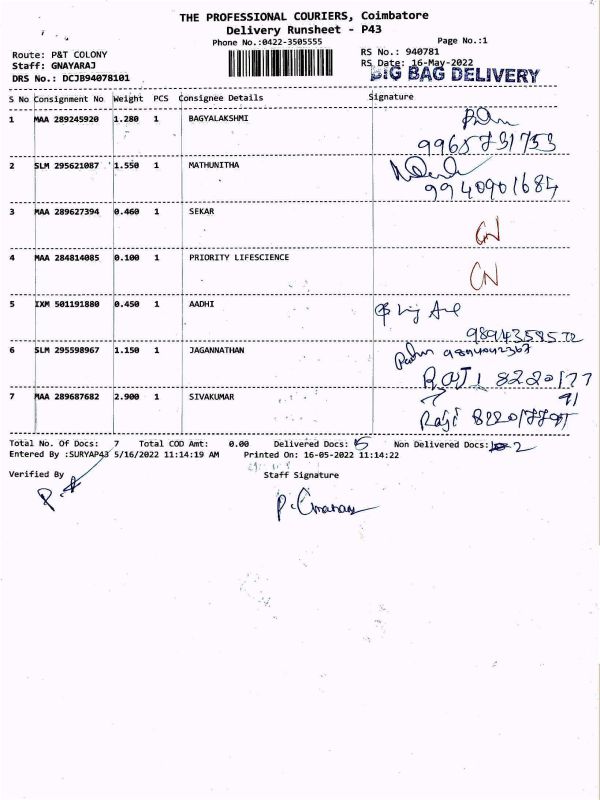 THE PROFESSIONAL COURIERS, Coimbatore
Delivery Runsheet - P43
Phone No.:0422-3505555
Page No.:1
Route: P&T COLONY
RS No.: 940781
Staff: GNAYARAJ
RS Date: 16-May-2022
BIG BAG DELIVERY
DRS No.: DCJB94078101
S No Consignment No Weight PCS Consignee Details Signature
1 MAA 289245920 1.280 1 BAGYALAKSHMI
2 SLM 295621087 1.550 1 MATHUNITHA
9940901684
3 MAA 289627394 0.460 1 SEKAR
CN
4 MAA 284814085 0.100 1 PRIORITY LIFESCIENCE
CN
5 IXM 501191880 0.450 1 AADHI
6 SLM 295598967 1.150 1 JAGANNATHAN
7 MAA 289687682 2.900 1 SIVAKUMAR
Total No. Of Docs: 7 Total COD Amt: 0.00 Delivered Docs: 5 Non Delivered Docs: 2
Entered By :SURYAP43 5/16/2022 11:14:19 AM Printed On: 16-05-2022 11:14:22
Verified By Staff Signature